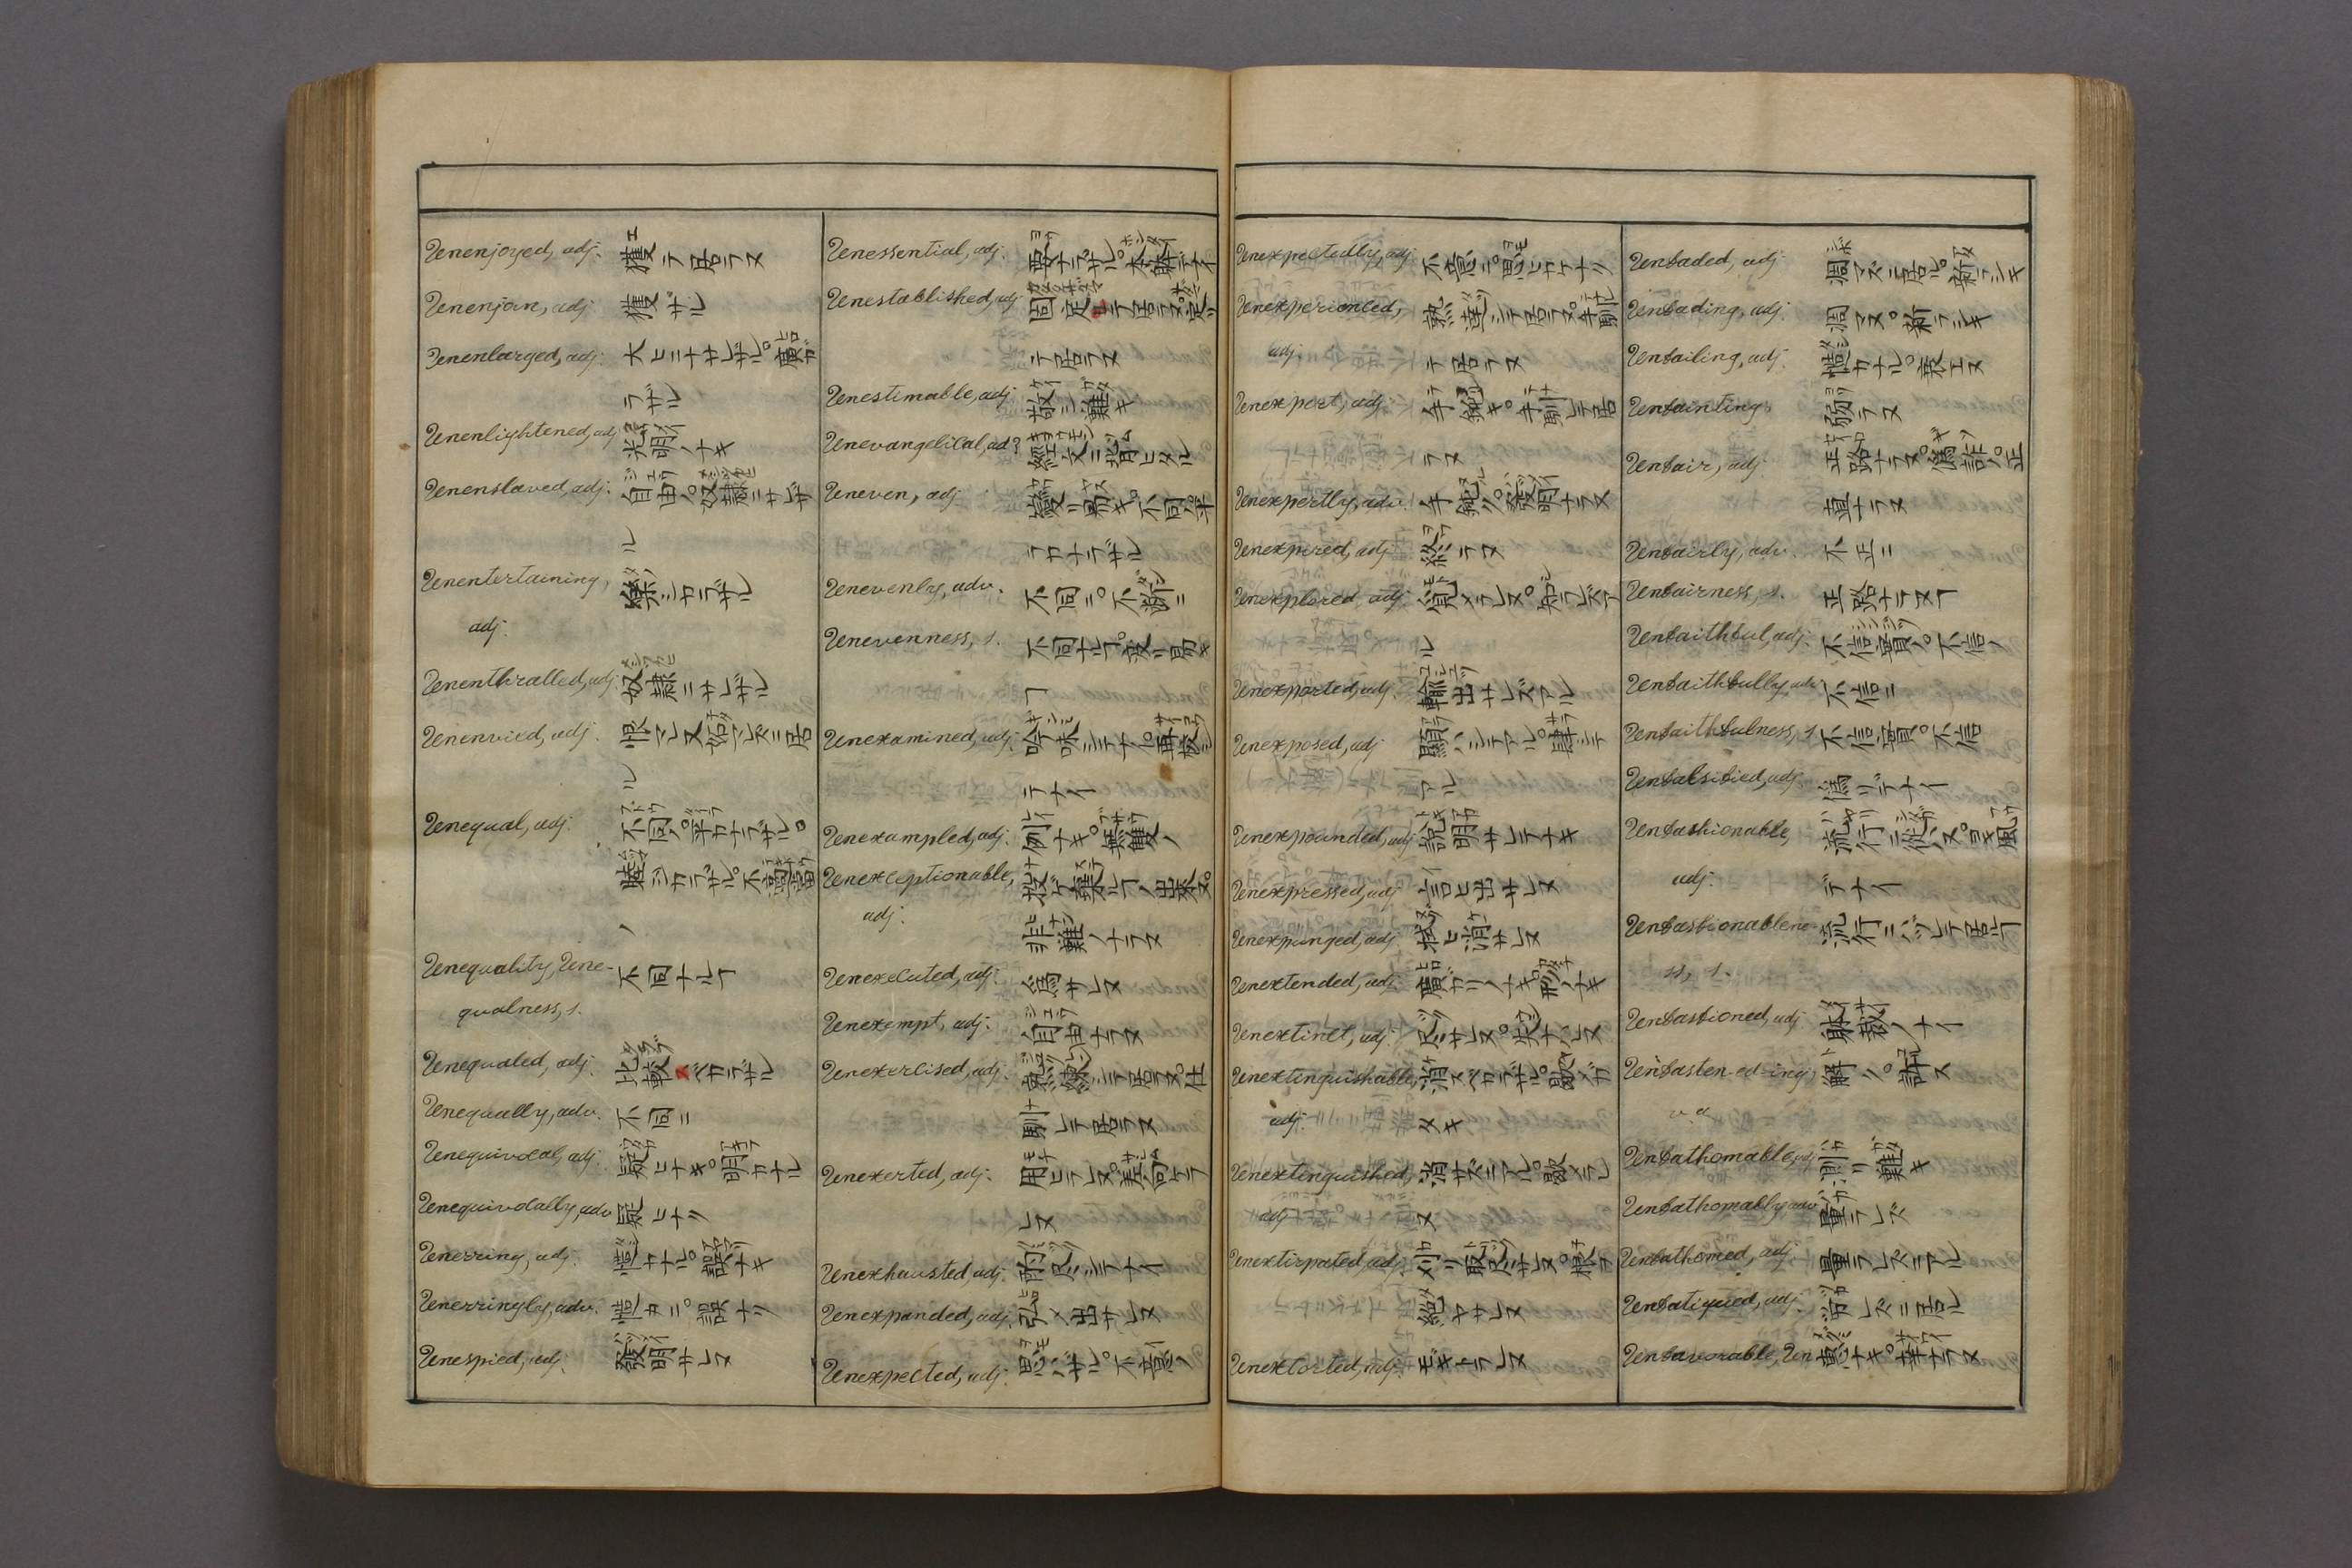 Unenjoyed, adj. 獲テ居ラヌ
Unenjoin, adj. 獲ザル
Unenlarged, adj. 大ヒニナサレザル。廣ガ
ラザル
Unenlightened, adj. 光明ノナキ
Unenslaved, adj. 自由ノ。奴隷ニサレザ
ル
Unentertaining, 樂シカラザル
adj.
Unenthralled, adj. 奴隷ニサレザル
Unenvied, adj.
ル
Unequal, adj. 不同ノ。平カナラザル。
睦ジカラザル。不
ノ
Unequality, Une- 不同ナルヿ
qualness, s.
Unequaled, adj. 比較スベカラザル
Unequally, adv. 不同ニ
Unequivocal, adj. 疑ヒナキ。明カナル
Unequivocally, adv. 疑ヒナク
Unerring, adj. 慥カナル。誤ナキ
Unerringly, adv. 慥カニ。誤ナク
Unespied, adj. 發明サレヌ
Unessential, adj. 要ナラザル。本躰デナイ
Unestablished, adj. 固定シテ居ラヌ。定ツ
テ居ラヌ
Unestimable, adj. 敬シ難キ
Unevangelical, ad? 經文ニ背ヒタル
Uneven, adj. 不同。平
ラカナラザル
Unevenly, adv. 不同ニ。不
Unevenness, s. 不同ナルヿ。変リ易キ
ヿ
Unexamined, adj. 吟味シテナイ。再校シ
テナイ
Unexampled, adj. 例ナキ。無雙ノ
Unexceptionable, 出来ヌ。
adj. 非難ノナラヌ
Unexecuted, adj. 爲サレヌ
Unexempt, adj. 自由ナラヌ
Unexercised, adj. 熟練シテ居ラヌ。仕
馴レテ居ラヌ
Unexerted, adj. 用ヒラレヌ。差向ケラ
レヌ
Unexhausted, adj. 尽シテナイ
Unexpanded, adj. 弘メ出サレヌ
Unexpected, adj. 思ハザル。不意ノ
Unexpectedly, adj. 不意ニ。思ヒカケナク
Unexperienced, 熟達シテ居ラヌ。手馴
adj. テ居ラヌ
Unexpert, adj. 手鈍キ。手馴レテ居
ラヌ
Unexpertly, adv. 手鈍ク。發明ナラヌ
Unexpired, adj. 終ラヌ
Unexplored, adj. 知ラレズア
ル
Unexported, adj. 輸出サレズアル
Unexposed, adj. 顕ハシテアル。
アル
Unexpounded, adj. 説明サレテナキ
Unexpressed, adj. 言ヒ出サレヌ
Unexpunged, adj. 拭ヒ消サレヌ
Unextended, adj. 廣ガリノナキ。形ノナキ
Unextinct, adj. 尽サレヌ。失ナハレヌ
Unextinguishable, 消スベカラザル。
adj. タキ
Unextinguished, 消サズニアル。
adj. ヌ
Unextirpated, adj. 刈リ取尽サレヌ。根
絶ヤサレヌ
Unextorted, adj. モギトラレヌ
Unfaded, adj. 凋マズニ居ル。新ラシキ
Unfading, adj. 凋マヌ。新ラシキ
Unfailing, adj. 慥カナル。衰エヌ
Unfainting, 弱ラヌ
Unfair, adj. 正路ナラヌ。偽詐ノ。正
直ナラヌ
Unfairly, adv. 不正ニ
Unfairness, s. 正路ナラヌヿ
Unfaithful, adj. 不信實ノ。不信ノ
Unfaithfully, adv. 不信ニ
Unfaithfulness, s. 不信實。不信
Unfalsified, adj. 偽リデナイ
Unfashionable, 流行ニ從ハヌ。ヨキ風
adj. デナイ
Unfashionablene- 流行ニハヅレテ居ルヿ
ss, s.
Unfashioned, adj. 躰裁ノナイ
Unfasten-ed-ing, 解ク。許ス
v.a
Unfathomable, adj. 測リ難キ
Unfathomably adv. 量ラレズ
Unfathomed, adj. 量ラレズニアル
Unfatigued, adj. 労レズニ居ル
Unfavorable, Un 恵ナキ。幸ナラヌ